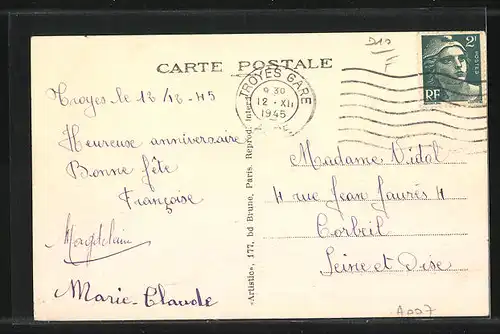 210
F
2F
RF
CARTE POSTALE
TROYES GARE
9 30
12 • XII
1945
Troyes le 12/12-45
Heureuse anniversaire
Bonne fête
Françoise
Magdelain
Marie-Claude
«Artistic», 177, bd Brune, Paris. Reprod. interd.
Madame Vidal
4 rue Jean Jaurès 4
Corbeil
Seine et Oise
A007